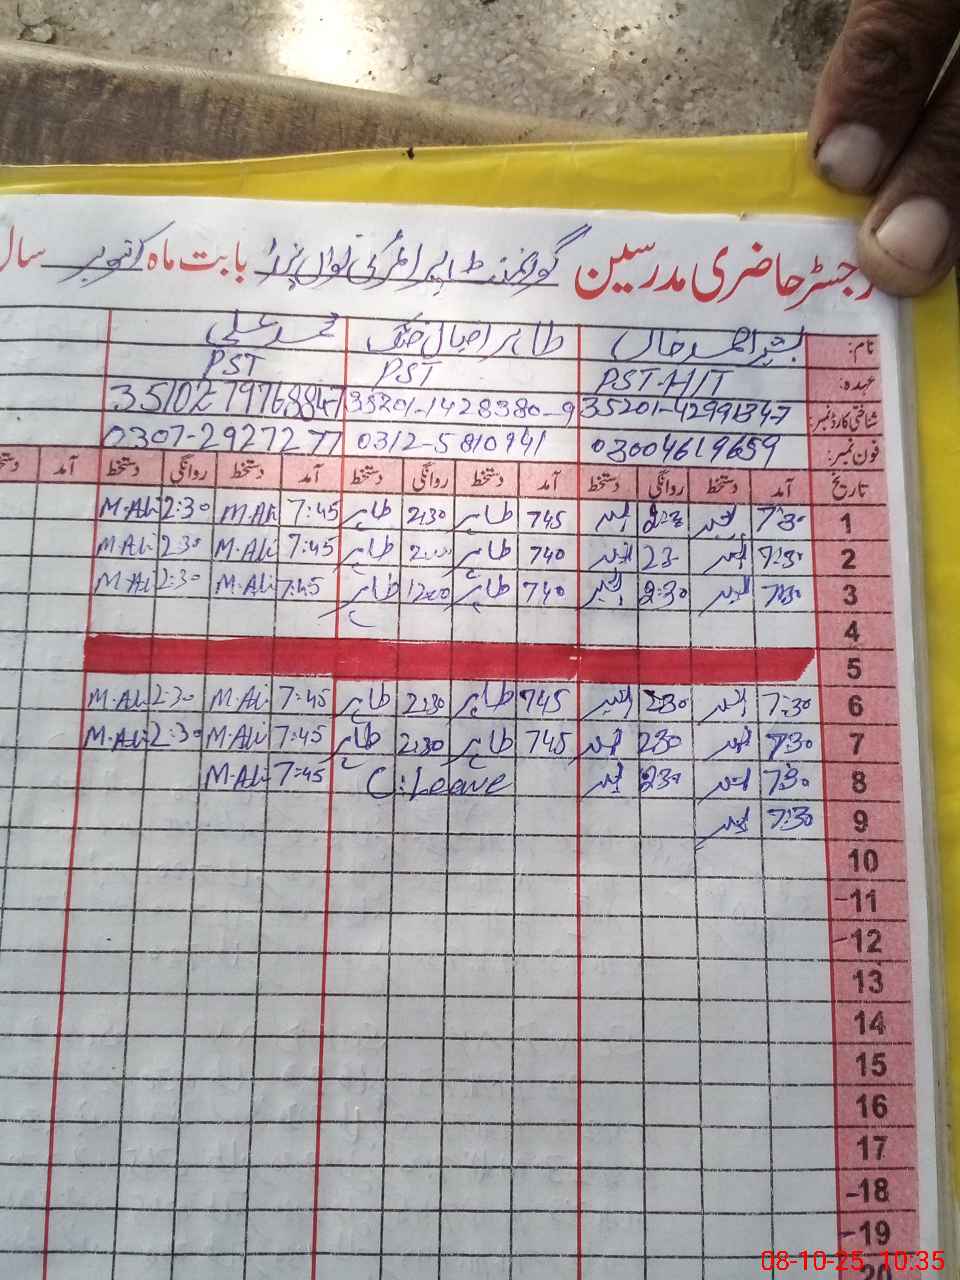 رجسٹر حاضری مدرسین گورنمنٹ پرائمری بابت ماہ اکتوبر سال
نام: بشیر احمد خاں طاہر اقبال محمد علی
عہدہ: PST-HIT PST PST
شناختی کارڈ نمبر: 35201-1428380-9
فون نمبر: 03004619659 0312-5810941 0307-2927277
تاریخ آمد دستخط روانگی دستخط آمد دستخط روانگی دستخط آمد دستخط روانگی دستخط آمد
1 7:30 745 طاہر 2:30 طاہر 7:45 M.Ali 2:30 M.Ali
2 7:30 740 طاہر طاہر 7:45 M.Ali 2:30 M.Ali
3 7:30 2:30 740 طاہر 12:00 طاہر 7:45 M.Ali 2:30 M.Ali
4
5
6 7:30 2:30 745 طاہر 2:30 طاہر 7:45 M.Ali 2:30 M.Ali
7 7:30 230 745 طاہر 2:30 طاہر 7:45 M.Ali 2:30 M.Ali
8 7:30 230 C:Leave 7:45 M.Ali
9 7:30
10
11
12
13
14
15
16
17
18
19
20
08-10-25 10:35